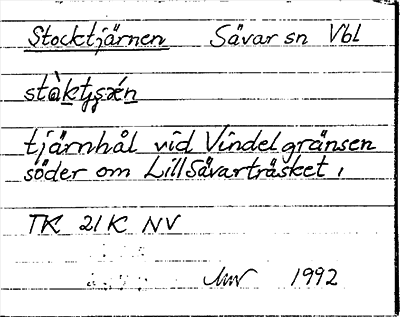 Stocktjärnen Sävar sn Vbl
tjärnhål vid Vindelgränsen
söder om LillSävarträsket,
TK 21K NV
1992